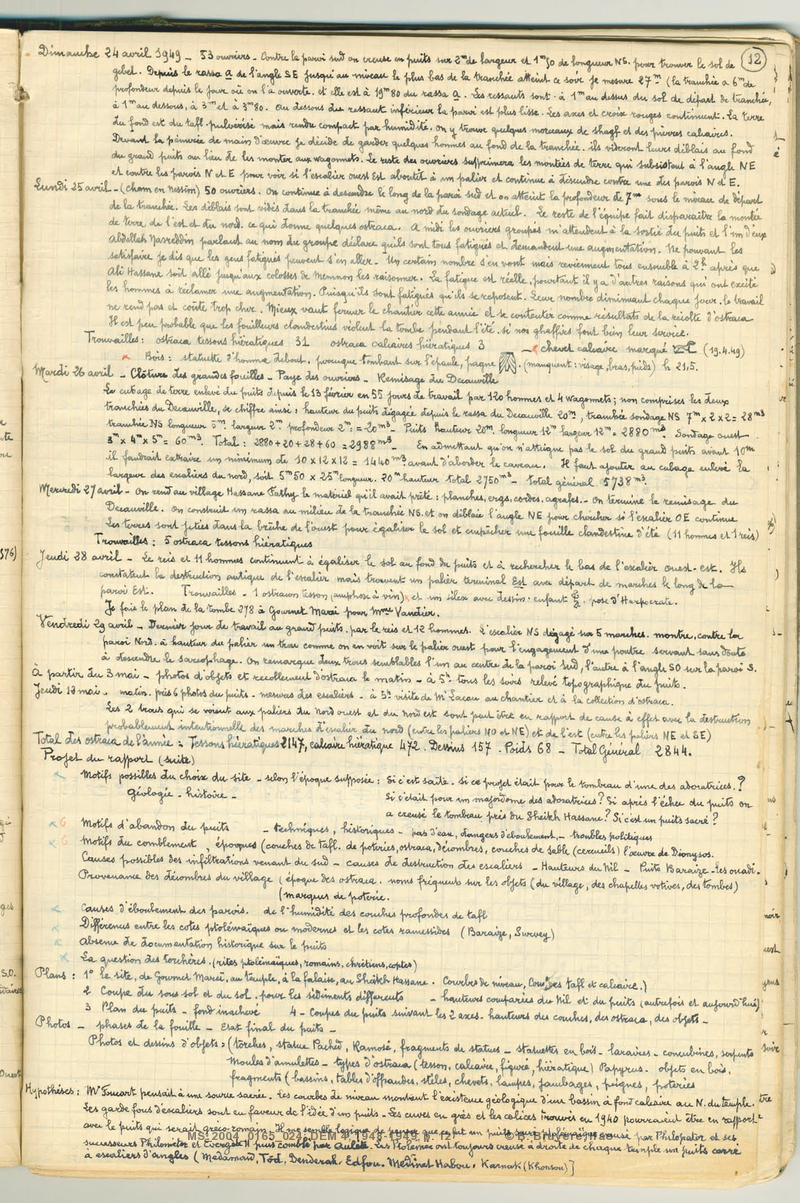 12
Dimanche 24 avril 1949 - 53 ouvriers - Contre la paroi sud on creuse un puits sur 2m de largeur et 1m50 de longueur NS. pour trouver le sol de
gebel. Depuis le rassa a de l'angle SE jusqu'au niveau le plus bas de la tranchée atteint ce soir je mesure 27m (la tranchée a 6m de
profondeur depuis le jour où on l'a ouverte. et elle est à 19m80 du rassa a. Les ressauts sont à 1m au dessus du sol de départ de tranchée,
à 1m au dessous, à 3m et à 3m80. Au dessous du ressaut inférieur la paroi est plus lisse. Les axes et croix rouges continuent. La terre
du fond est du tafl pulvérisé mais rendu compact par humidité. On y trouve quelques morceaux de shagf et des pierres calcaires.
Devant la pénurie de main d'œuvre je décide de garder quelques hommes au fond de la tranchée. ils videront leurs déblais au fond
du grand puits au lieu de les monter aux wagonnets. Le reste des ouvriers supprimera les montées de terre qui subsistent à l'angle NE
et contre les parois N et E pour voir si l'escalier ouest aboutit à un palier et continue à descendre contre une des parois N et E.
Lundi 25 avril - (cham en nessim) 50 ouvriers. On continue à descendre le long de la paroi sud et on atteint la profondeur de 7m sous le niveau de départ
de la tranchée. Les déblais sont vidés dans la tranchée même au nord du sondage actuel. Le reste de l'équipe fait disparaître la montée
de terre, de l'est et du nord. ce qui donne quelques ostraca. A midi les ouvriers groupés m'attendent à la sortie du puits et l'un d'eux
Abdallah Nasreddin parlant au nom du groupe déclare qu'ils sont tous fatigués et demandent une augmentation. Ne pouvant les
satisfaire je dis que les gens fatigués peuvent s'en aller. Un certain nombre s'en vont mais reviennent tous ensemble à 2h après que
Ali Hassane soit allé jusqu'aux colosses de Memnon les raisonner. La fatigue est réelle, pourtant il y a d'autres raisons qui ont excité
les hommes à réclamer une augmentation. Puisqu'ils sont fatigués qu'ils se reposent. Leur nombre diminuant chaque jour. le travail
ne rend pas et coûte trop cher. Mieux vaut fermer le chantier cette année et se contenter comme résultats de la récolte d'ostraca
Il est peu probable que les fouilleurs clandestins violent la tombe pendant l'été. si nos ghaffirs font bien leur service.
Trouvailles : ostraca tessons hiératiques 31 ostraca calcaires hiératiques 3 - chevet calcaire marqué (19.4.49)
Bois : statuette d'homme debout. perruque tombant sur l'épaule, pagne (manquent : visage, bras, pieds) h 21,5.
Mardi 26 avril - Clôture des grandes fouilles - Paye des ouvriers - Remisage du Decauville
Le cubage de terre enlevé du puits depuis le 13 février en 55 jours de travail par 120 hommes et 4 wagonnets ; non comprises les deux
tranchées du Decauville, se chiffre ainsi : hauteur du puits dégagée depuis le rassa du Decauville 20m, tranchée sondage NS 7m x 2 x 2 = 28m3
tranchée NS longueur 5m largeur 2m profondeur 2m : = 20m3 - Puits hauteur 20m longueur 12m largeur 12m = 2880m3. Sondage ouest
3m x 4m x 5m = 60m3. Total : 2880+20+28+60 = 2988m3 - En admettant qu'on n'atteigne pas le sol du grand puits avant 10m
il faudrait extraire un minimum de 10 x 12 x 12 = 1440m3 avant d'aborder le caveau. Il faut ajouter au cubage enlevé la
largeur des escaliers du nord, soit 5m50 x 25m longueur. 20m hauteur Total 2750m3 - total général 5738m3.
Mercredi 27 avril - On rend au village Hassane Fathy le matériel qu'il avait prêté : planches, ergs, cordes, agrafes. - On termine le remisage du
Decauville. On construit un rassa au milieu de la tranchée NS. et on déblaie l'angle NE pour chercher si l'escalier OE continue
Les terres sont jetées dans la brèche de l'ouest pour égaliser le sol et empêcher une fouille clandestine d'été (11 hommes et 1 reis)
Trouvailles : 5 ostraca tessons hiératiques
Jeudi 28 avril - Le reis et 11 hommes continuent à égaliser le sol au fond du puits et à rechercher le bas de l'escalier ouest-est. Ils
constatent la destruction antique de l'escalier mais trouvent un palier terminal Est avec départ de marches le long de la
paroi Est. Trouvailles - 1 ostracon tesson (amphore à vin) et un silex avec dessin - enfant pose d'Harpocrate.
Je fais le plan de la tombe 278 à Gournet Marei pour Mme Vandier.
Vendredi 29 avril - Dernier jour de travail au grand puits. par le reis et 12 hommes. L'escalier NS dégagé sur 5 marches. montre, contre la
paroi Nord. à hauteur du palier un trou comme on en voit sur le palier ouest pour l'engagement d'une poutre servant sans doute
à descendre le sarcophage. On remarque deux trous semblables l'un au centre de la paroi sud, l'autre à l'angle SO sur la paroi S.
À partir du 3 mai - photos d'objets et recollement d'ostraca le matin - à 5h tous les soirs relevé topographique du puits.
Jeudi 12 mai. matin. pris 6 photos du puits - mesures des escaliers - à 5h visite de Mr Lacau au chantier et à la collection d'ostraca.
Les 2 trous qui se voient aux paliers du Nord ouest et du Nord est sont peut être en rapport de cause à effet avec la destruction
probablement intentionnelle des marches d'escalier du nord (entre les paliers NO et NE) et de l'est (entre les paliers NE et SE)
Total des ostraca de l'année : Tessons hiératiques 2147, calcaire hiératique 472. Dessins 157. Poids 68 - Total Général 2844.
Projet du rapport (suite)
Motifs possibles du choix du site - selon l'époque supposée : Si c'est saïte - si ce projet était pour le tombeau d'une des adoratrices ?
Géologie - histoire - Si c'était pour un majordome des adoratrices ? Si après l'échec du puits on
a creusé le tombeau près du Sheikh Hassane ? Si c'est un puits sacré ?
Motifs d'abandon du puits - techniques, historiques - pas d'eau, dangers d'éboulement, - troubles politiques
Motifs du comblement, époques (couches de tafl. de poteries, ostraca, décombres, couches de sable (cercueils) l'œuvre de Dionysos.
Causes possibles des infiltrations venant du sud - causes de destruction des escaliers - Hauteurs du Nil - Puits Baraize - les ouadi.
Provenance des décombres du village (époque des ostraca. noms fréquents sur les objets (du village, des chapelles votives, des tombes)
(marques de poterie.
causes d'éboulement des parois. de l'humidité des couches profondes de tafl
Différences entre les cotes ptolémaïques ou modernes et les cotes ramessides (Baraize, Survey)
Absence de documentation historique sur le puits
La question des torchères. (rites ptolémaïques, romains, chrétiens, coptes)
Plans : 1° le site, de Gournet Mareï, au temple, à la falaise, au Sheikh Hassane. Courbes de niveau, Coupes tafl et calcaire.)
2 Coupe du sous sol et du sol. pour les sédiments différents - hauteurs comparées du Nil et du puits (autrefois et aujourd'hui)
3 Plan du puits - fond inachevé 4 - Coupes du puits suivant les 2 axes. hauteurs des couches, des ostraca, des objets -
Photos - phases de la fouille - Etat final du puits -
Photos et dessins d'objets : (torches, statue Pached, Ramosé, fragments de statues - statuettes en bois - laraires - concubines, serpents
Moules d'amulettes - types d'ostraca (tesson, calcaire, figuré, hiératique) Papyrus - objets en bois.
fragments (bassins, tables d'offrandes, stèles, chevets, lampes, jambages, peignes, poteries
Hypothèses : Mr Foucart pensait à une source sacrée. les courbes de niveau montrent l'existence géologique d'un bassin à fond calcaire au N. du temple.
Les garde fous d'escaliers sont en faveur de l'idée d'un puits. Les cuves en grès et les calices trouvés en 1940 pourraient être en rapport
avec le puits qui serait gréco-romain. Il me semble logique de penser que ce fut un puits creusé par Philopator et ses
successeurs Philométor et Evergète II puis comblé par Aulète. Les Ptolémées ont toujours creusé à droite de chaque temple un puits carré
à escaliers d'angles (Medamoud, Tôd, Denderah, Edfou, Medinet Habou, Karnak (Khonsou)]
MS_2004_0165_024 DEM 1948-1949 p. 12
© B. Bruyère-Ifao